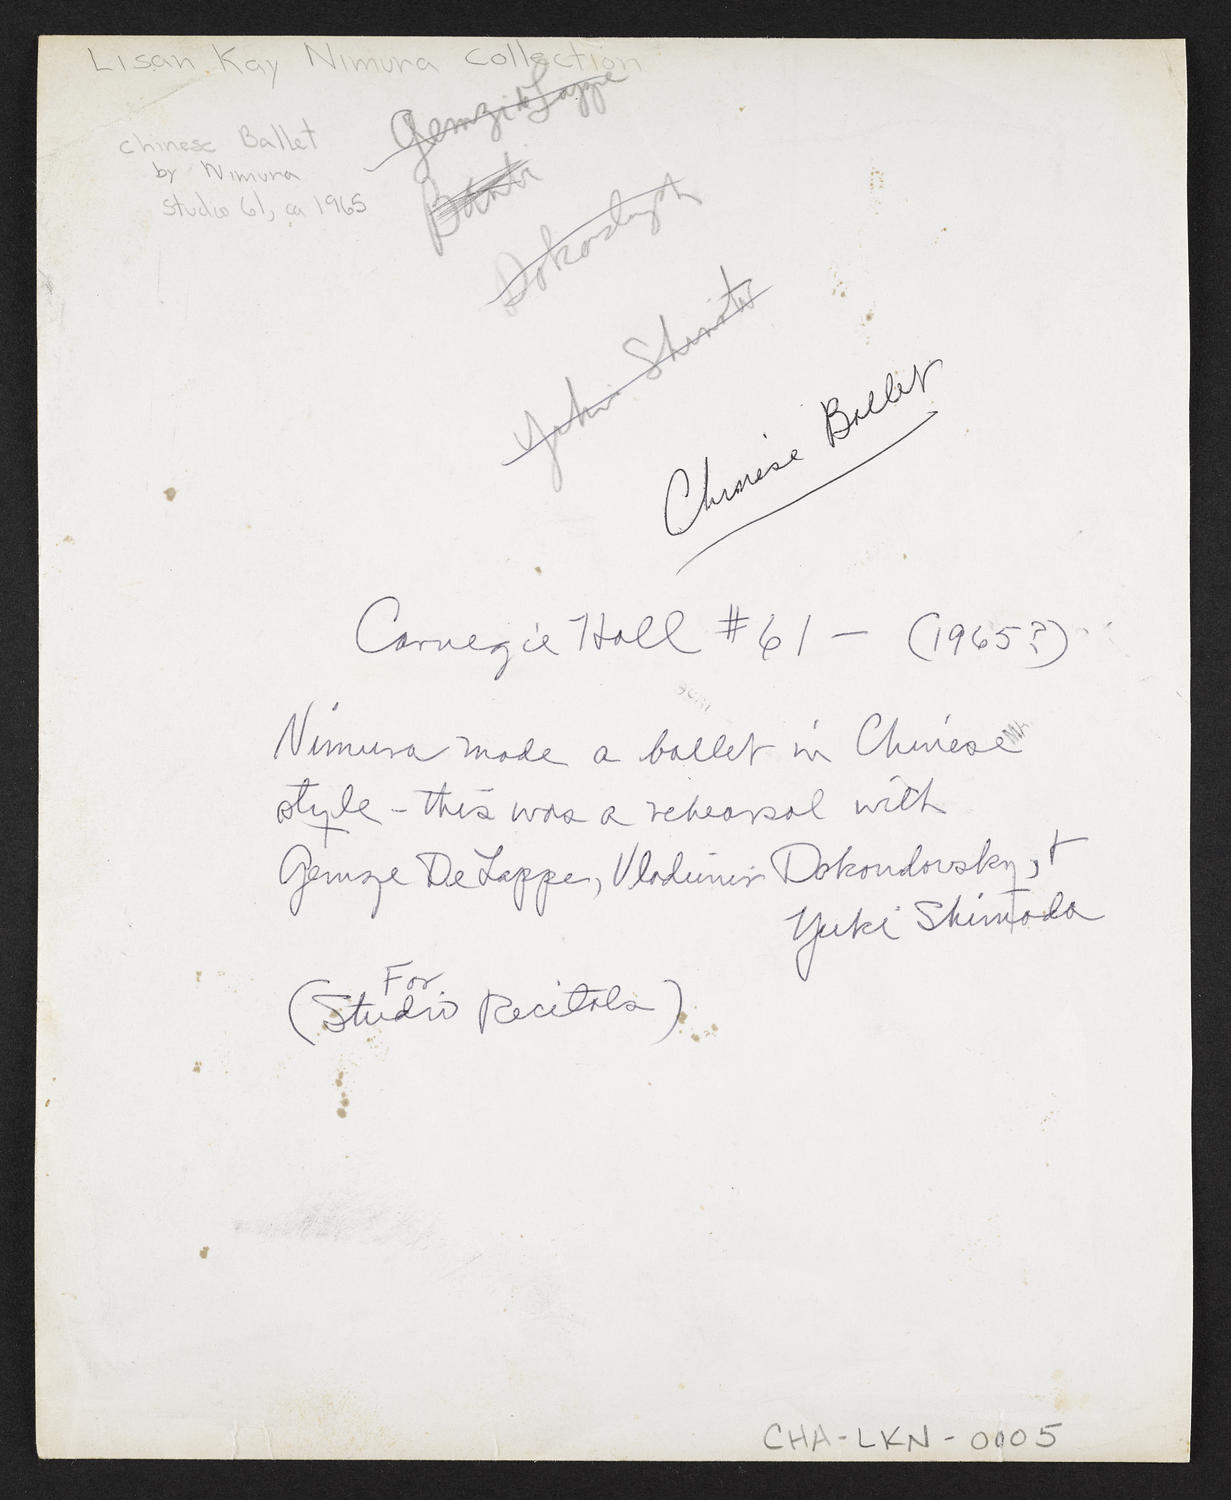 Lisan Kay Nimura Collection
Gemze de Lappe
Chinese Ballet
by Nimura
Studio 61, ca 1965
Chinese Ballet
Carnegie Hall #61 — (1965?)
Nimura made a ballet in Chinese
style - this was a rehearsal with
Gemze De Lappe, Vladimir Dokoudovsky, +
Yuki Shimoda
For
(Studio Recitals)
CHA-LKN-0005